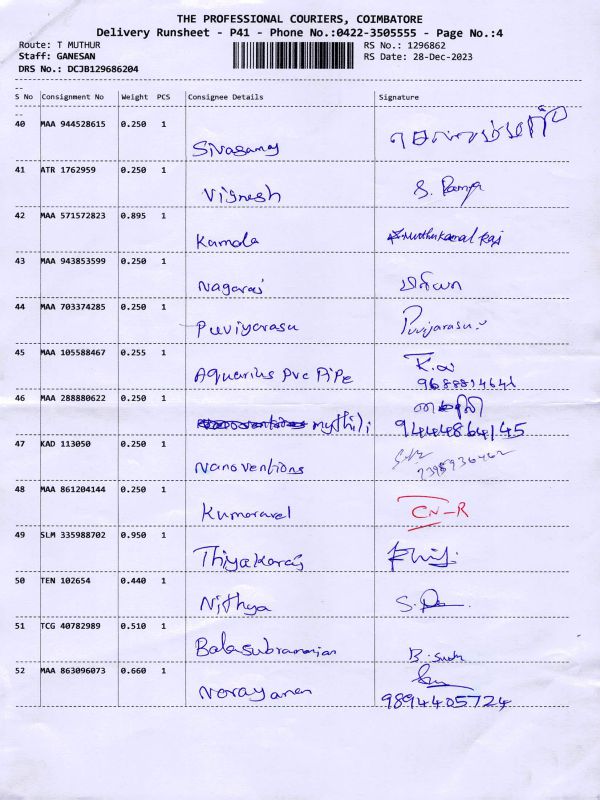 THE PROFESSIONAL COURIERS, COIMBATORE
Delivery Runsheet - P41 - Phone No.:0422-3505555 - Page No.:4
Route: T MUTHUR RS No.: 1296862
Staff: GANESAN RS Date: 28-Dec-2023
DRS No.: DCJB129686204
S No Consignment No Weight PCS Consignee Details Signature
40 MAA 944528615 0.250 1
Sivasamy
41 ATR 1762959 0.250 1
Vignesh S. Ramya
42 MAA 571572823 0.895 1
Kamala
43 MAA 943853599 0.250 1
Nagaraj
44 MAA 703374285 0.250 1
Puviyarasu Puvijarasu
45 MAA 105588467 0.255 1
Aquarius Pvc Pipe
46 MAA 288880622 0.250 1
mythili 9444864145
47 KAD 113050 0.250 1
Nanoventions
48 MAA 861204144 0.250 1
Kumaravel CN-R
49 SLM 335988702 0.950 1
Thiyakaraj
50 TEN 102654 0.440 1
Nithya
51 TCG 40782989 0.510 1
Balasubramanian
52 MAA 863096073 0.660 1
Narayanan 9894405724